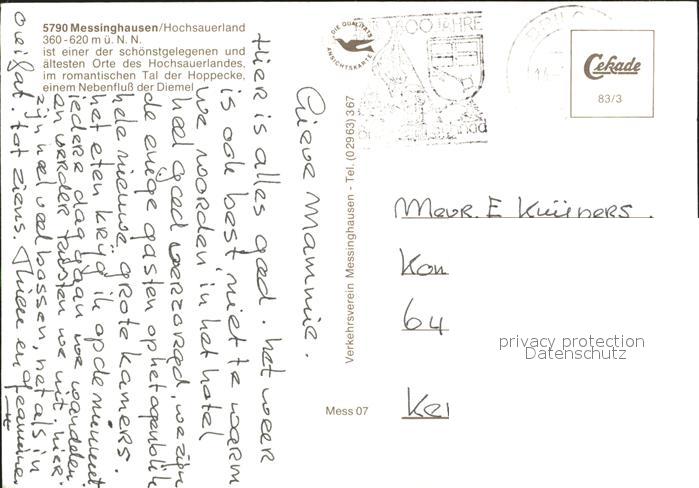 5790 Messinghausen/Hochsauerland
360-620 m ü. N. N.
ist einer der schönstgelegenen und
ältesten Orte des Hochsauerlandes,
im romantischen Tal der Hoppecke,
einem Nebenfluß der Diemel
DIE QUALITÄTS
ANSICHTSKARTE
800 JAHRE
Cekade
83/3
Lieve Mammie.
Hier is alles goed. het weer
is ook best, niet te warm
we worden in het hotel
heel goed verzorgd, we zijn
de enige gasten op het ogenblik
hele nieuwe, grote kamers.
het eten krijg ik op de minuut
iedere dag gaan we wandelen
en verder rusten we uit. hier
zijn veel bossen, net als in
tot ziens. Thien en
Verkehrsverein Messinghausen - Tel. (02963) 367
Mess 07
Mevr. E Kuijpers.
Kon
64
Kei
privacy protection
Datenschutz